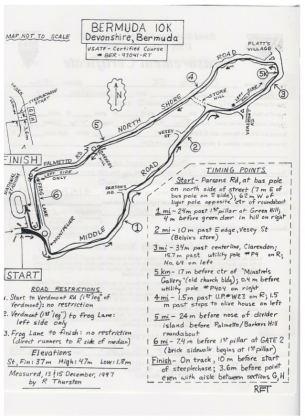 BERMUDA 10K
Devonshire, Bermuda
USATF - Certified Course
# BER-93041-RT
MAP NOT TO SCALE
PLATT'S
VILLAGE
ROAD
SHORE
NORTH
STORE
HILL
VESEY ST
PALMETTO RD
LEFT SIDE
ONLY
FINISH
FROG LANE
PARSONS RD.
MIDDLE
ROAD
MONTPELIER
N
1
2
3
4
5
5K
6
START
ROAD RESTRICTIONS
1. Start to Verdmont Rd (1st leg of
Verdmont): no restriction
2. Verdmont (1st leg) to Frog Lane:
left side only
3. Frog Lane to finish: no restriction
(direct runners to R side of median)
Elevations
St, Fin: 37m High: 47m Low: 1.8m
Measured, 13 & 15 December, 1997
by R Thurston
TIMING POINTS
Start - Parsons Rd, at bus pole
on north side of street (7m E of
bus pole on S side), 62m W of
light pole opposite ctr of roundabout
1 mi - 24m past 1st pillar at Green Hill,
4m before green door in hill on right
2 mi - 10m past E edge, Vesey St
(Belvin's store)
3 mi - 34m past centerline, Clarendon;
15.7m past utility pole # P9 on R;
No. 64 on left
5 km - 17m before ctr of "Minstrel's
Gallery" (old church bldg); 0.4m before
utility pole
4 mi - 1.5m past
m past steps to olive house on left
5 mi - 24m before nose of divider
island before Palmetto/Barkers Hill
roundabout
6 mi - 7.4m before 1st pillar of GATE 2
(brick sidewalk begins at 1st pillar)
Finish - On track, 10m before start
of steeplechase; 3.6m before point
even with aisle between sections G, H
RFT